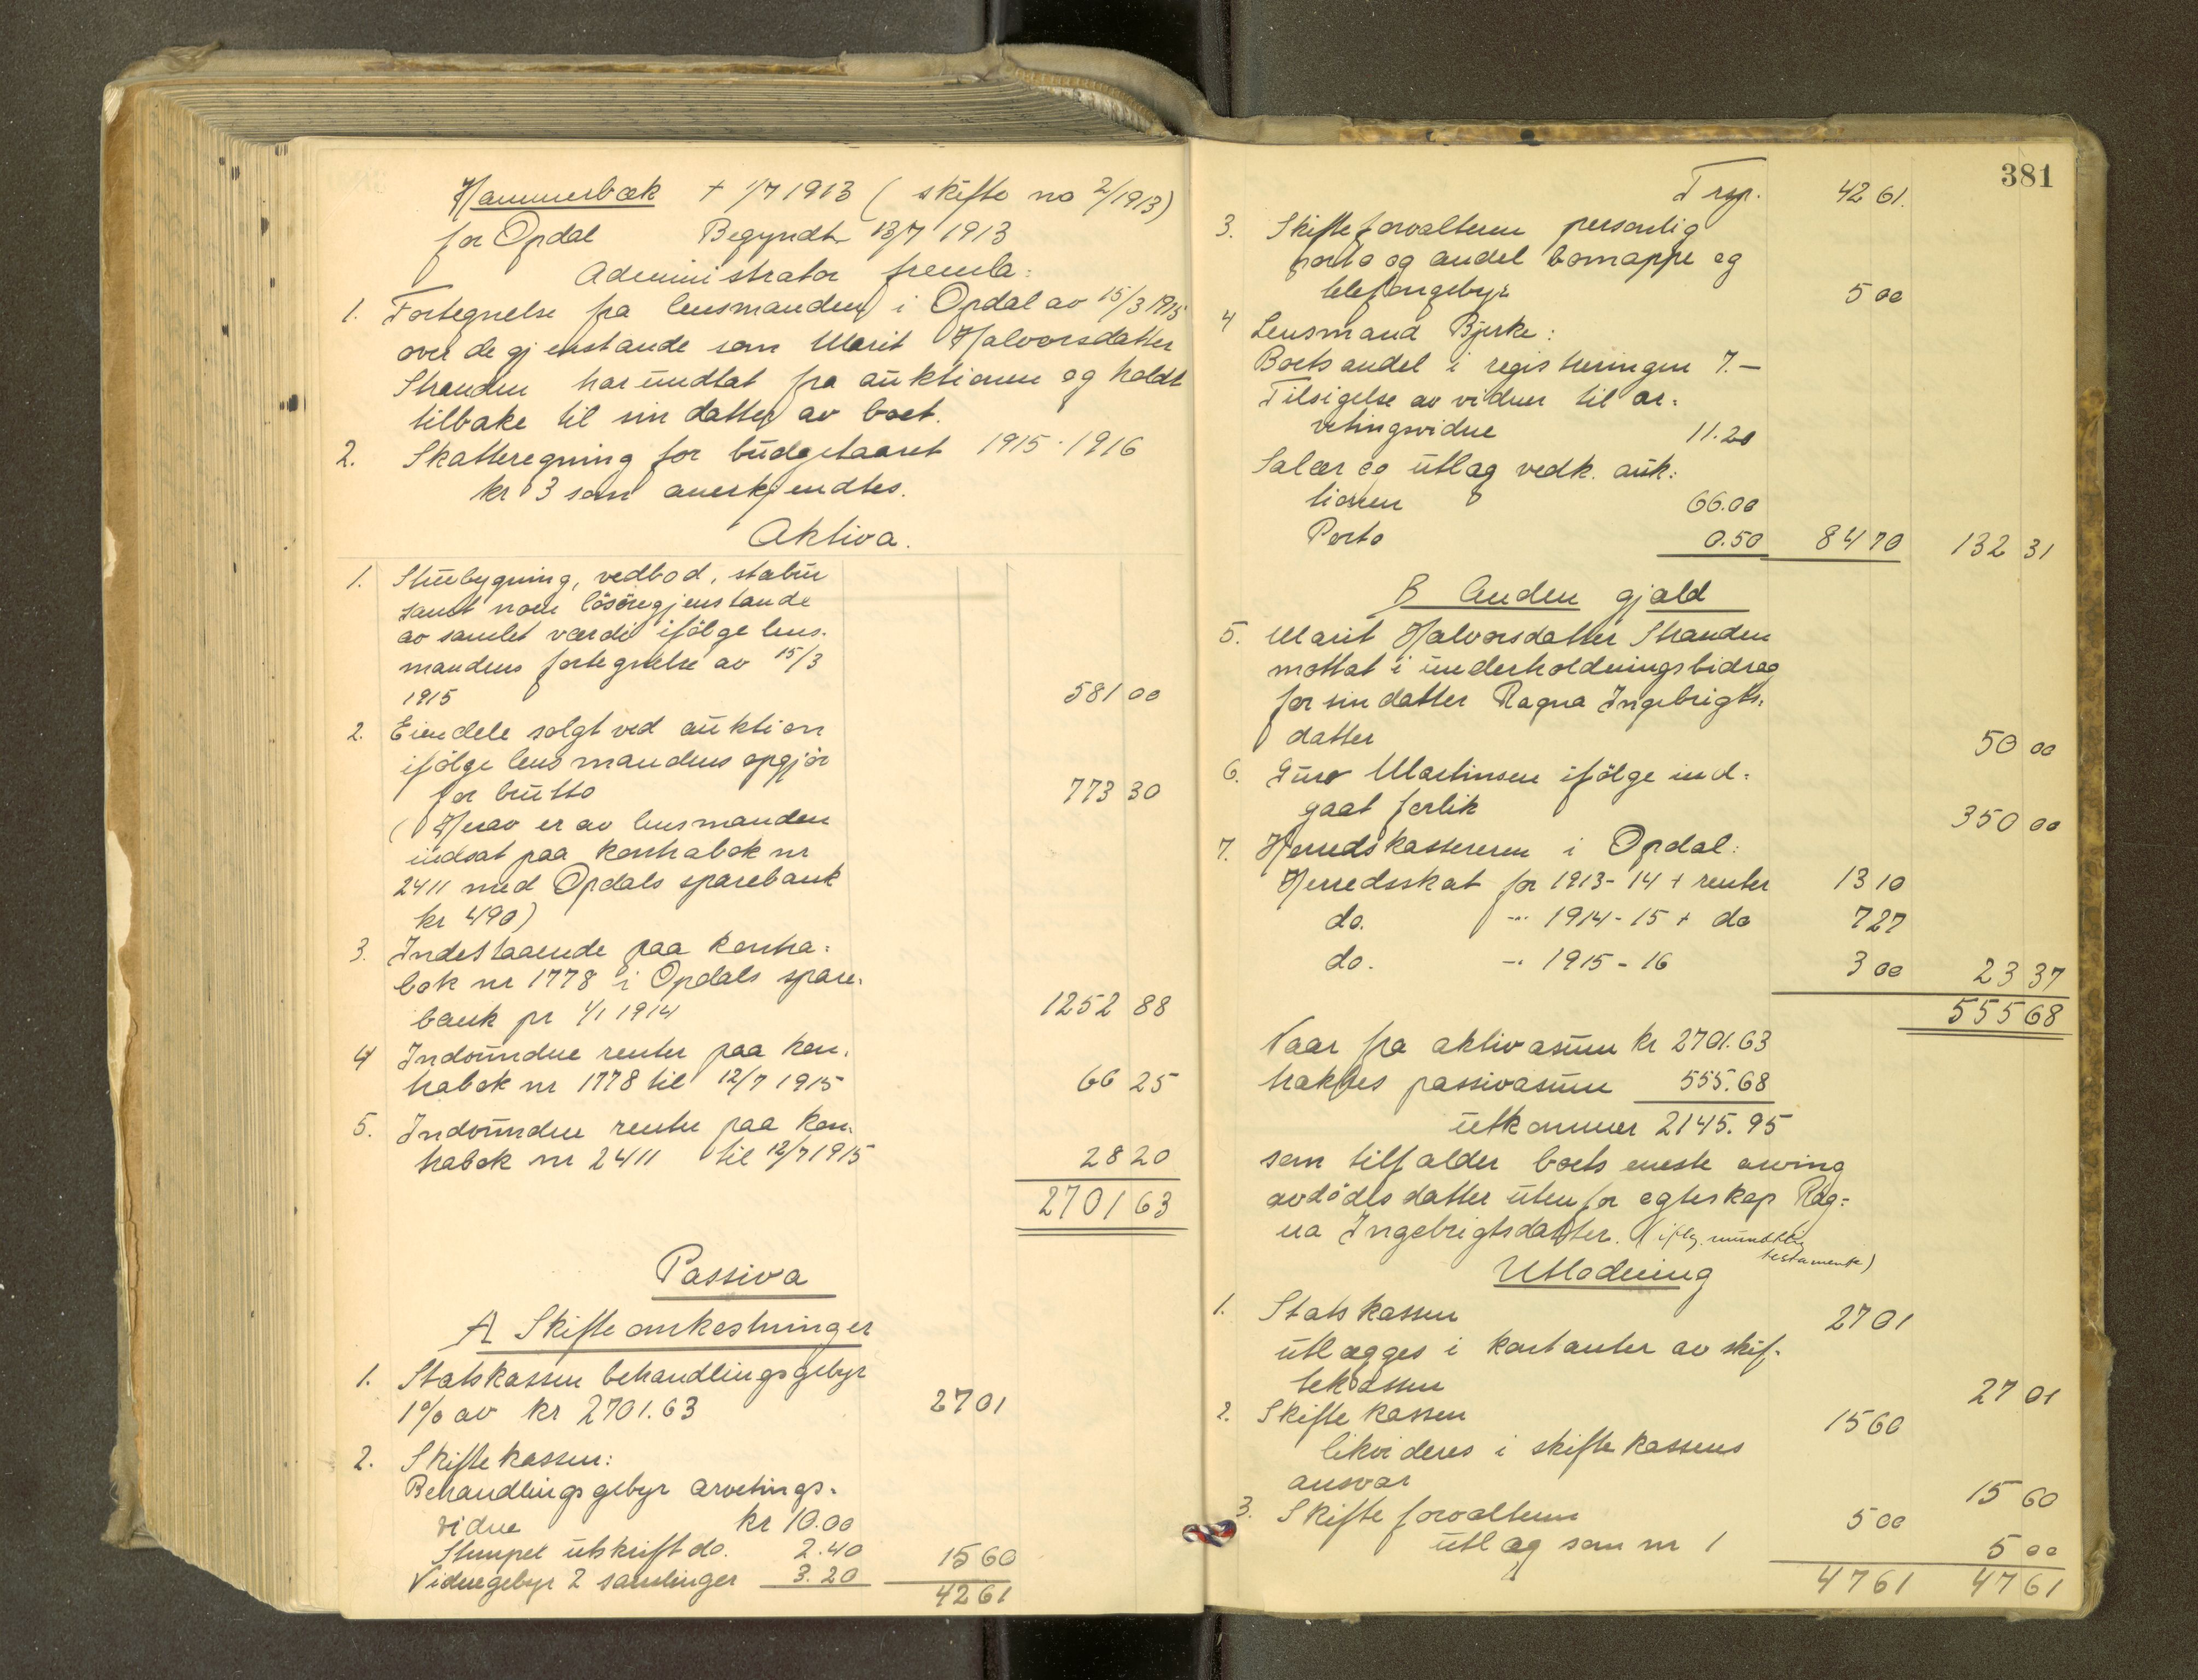 Hammerbæk + 1/7 1913 (skifte no 2/1913)
for Opdal Begyndt 13/7 1913
Administrator fremla:
1. Fortegnelse fra lensmanden i Opdal av 15/3 1915
over de gjenstande som Marit Halvorsdatter
Stranden har undtat fra auktionen og holdt
tilbake til sin datter av boet.
2. Skatteregning for budgetaaret 1915-1916
kr 3 som anerkjendtes.
Aktiva.
1. Stuebygning, vedbod, stabur
samt noen lösöregjenstande
av samlet værdi ifölge lens-
mandens fortegnelse av 15/3
1915 581 00
2. Eiendele solgt ved auktion
ifölge lensmandens opgjör
for brutto 773 30
(Herav er av lensmanden
indsat paa kontrabok nr
2411 med Opdals sparebank
kr 490)
3. Indestaaende paa kontra-
bok nr 1778 i Opdals spare-
bank pr 1/1 1914 1252 88
4 Indvundne renter paa kon-
trabok nr 1778 til 12/7 1915 66 25
5. Indvundne renter paa kon-
trabok nr 2411 til 12/7 1915 28 20
2701 63
Passiva
A Skifteomkostninger
1. Statskassen behandlingsgebyr
1% av kr 2701.63 27 01
2. Skiftekassen:
Behandlingsgebyr arvetings-
vidne kr 10.00
Stempel utskrift do. 2.40 15 60
Vidnegebyr 2 samlinger 3.20
42 61
381
Trsp. 42 61.
3. Skifteforvalteren personlig
porto og andel bomappe og
telefongebyr 5 00
4 Lensmand Bjerke:
Boets andel i registreringen 7.—
Tilsigelse av vidner til ar-
vetingsvidne 11.20
Salær og utlæg vedk. auk-
tionen 66.00
Porto 0.50 84 70 132 31
B Anden gjæld
5. Marit Halvorsdatter Stranden
mottat i underholdningsbidrag
for sin datter Ragna Ingebrigts-
datter 50 00
6. Guro Martinsen ifölge ind-
gaat forlik 350 00
7. Herredskassereren i Opdal:
Herredsskat for 1913-14 + renter 13 10
do. -"- 1914-15 + do 7 27
do. -"- 1915-16 3 00 23 37
555 68
Naar fra aktivasum kr 2701.63
trækkes passivasum 555.68
utkommer 2145.95
som tilfalder boets eneste arving
avdödes datter utenfor egteskap Rag-
na Ingebrigtsdatter. (iflg. mundtlig
testamente)
Utlodning
1. Statskassen 27 01
utlægges i kontanter av skif-
tekassen 27 01
2. Skiftekassen 15 60
likvideres i skiftekassens
ansvar 15 60
3. Skifteforvalteren 5 00
utlæg som nr 1 5 00
47 61 47 61